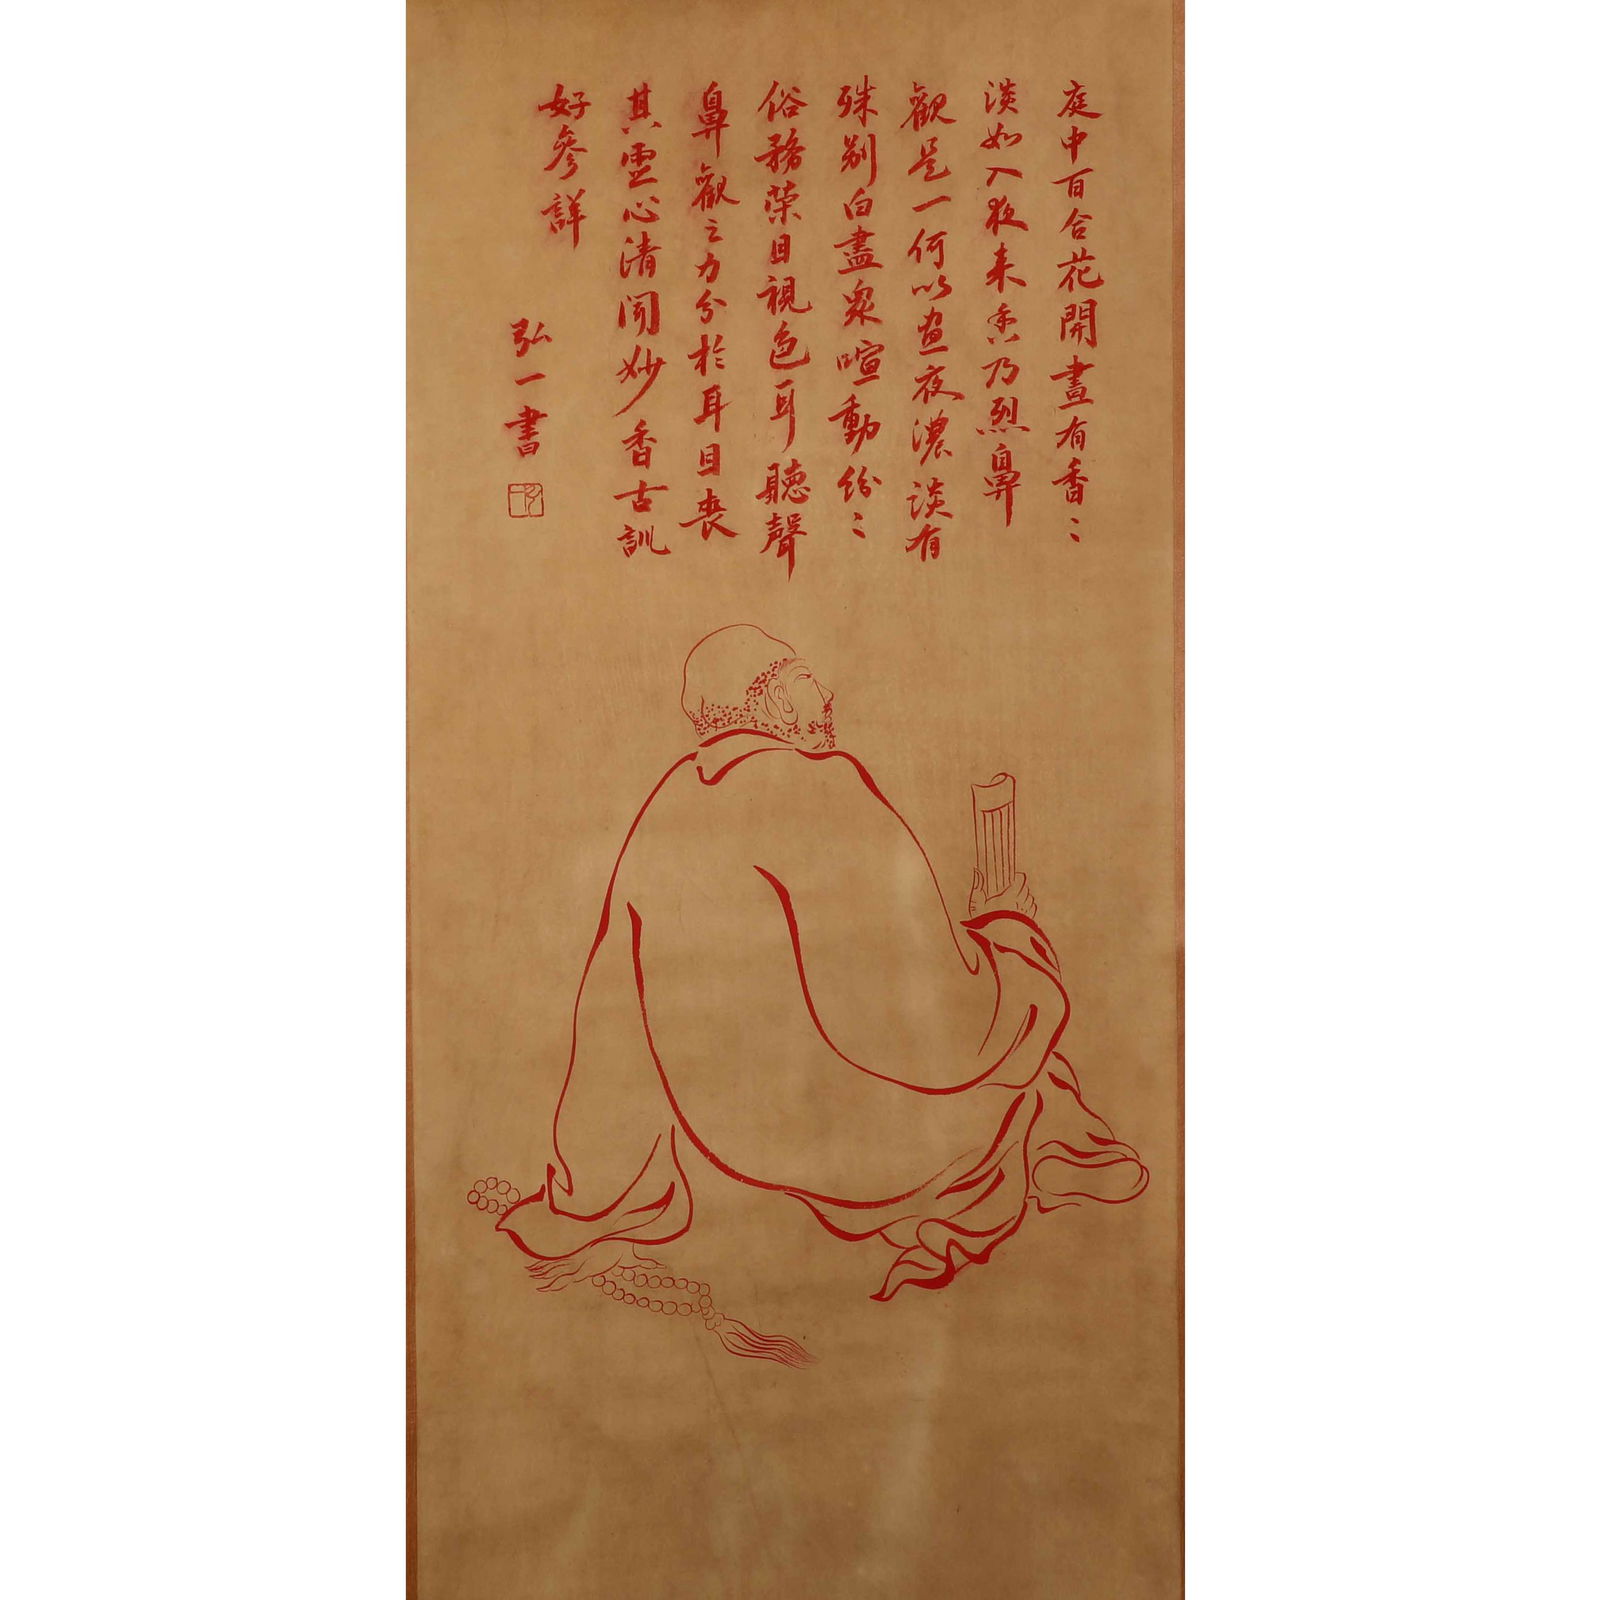 庭中百合花開晝有香〻
淡如入夜来香乃烈鼻
觀是一何以晝夜濃淡有
殊别白晝衆喧動紛〻
俗務榮目視色耳聽聲
鼻觀之力分於耳目喪
其靈心清聞妙香古訓
好參詳
弘一書